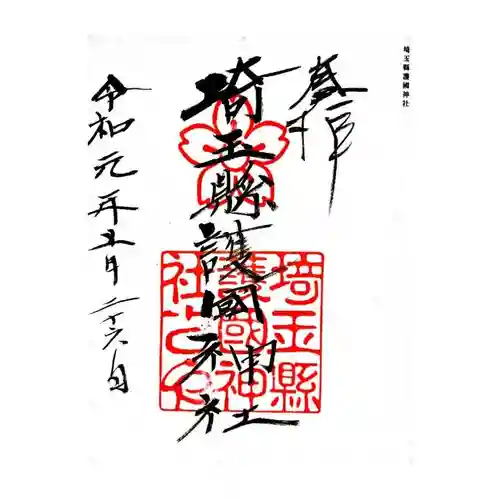 埼玉縣護國神社
奉拝
埼玉縣護國神社
埼玉縣
護國神
社之印
令和元年五月二十六日